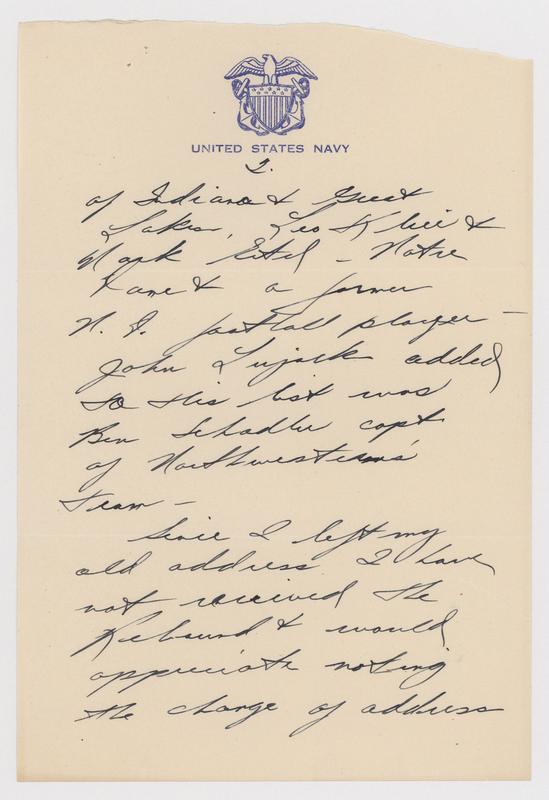 UNITED STATES NAVY
2.
of Indiana & Great
Lakes, Leo Klier &
Mark Ertel - Notre
Dame & a former
N. D. football player -
John Lujack added
to this list was
Ben Schadler capt
of Northwestern's
team -
Since I left my
old address I have
not received the
Rebound & would
appreciate noting
the change of address